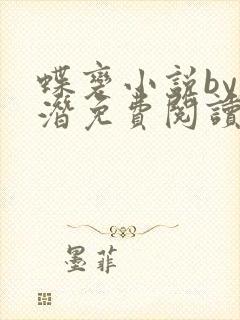 蝶变小说by
潜免费閱讀
墨菲